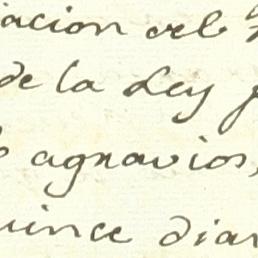 iacion del
de la Ley
agravios,
uince dias